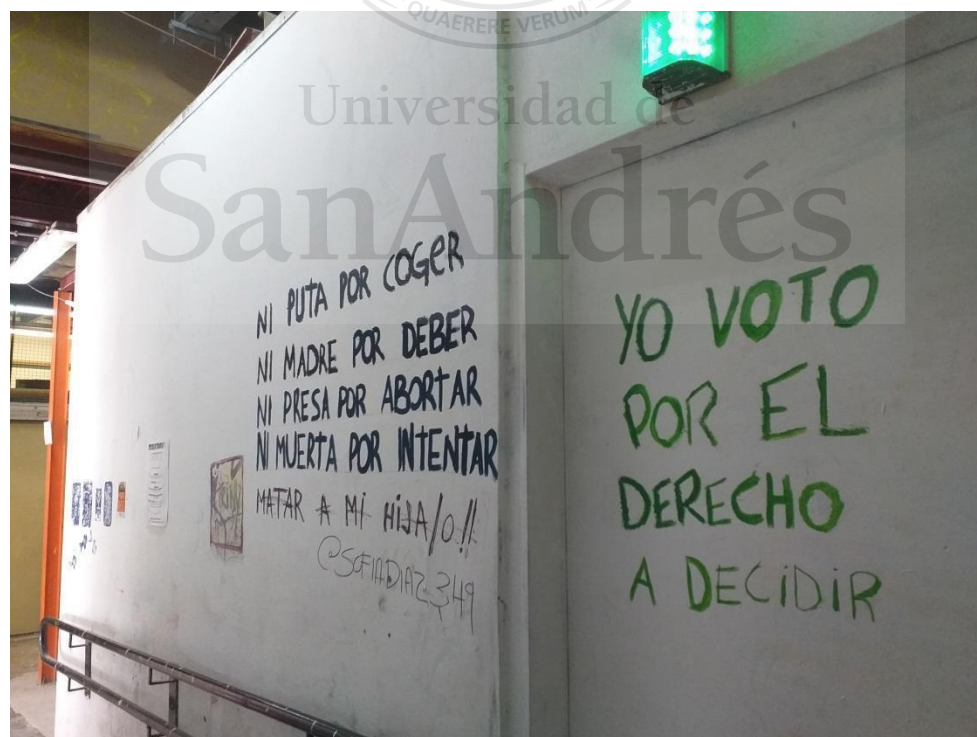 QUAERERE VERUM
Universidad de
SanAndrés
NI PUTA POR COGER
NI MADRE POR DEBER
NI PRESA POR ABORTAR
NI MUERTA POR INTENTAR
MATAR A MI HIJA/O!!
@SOFIADIAZ349
YO VOTO
POR EL
DERECHO
A DECIDIR